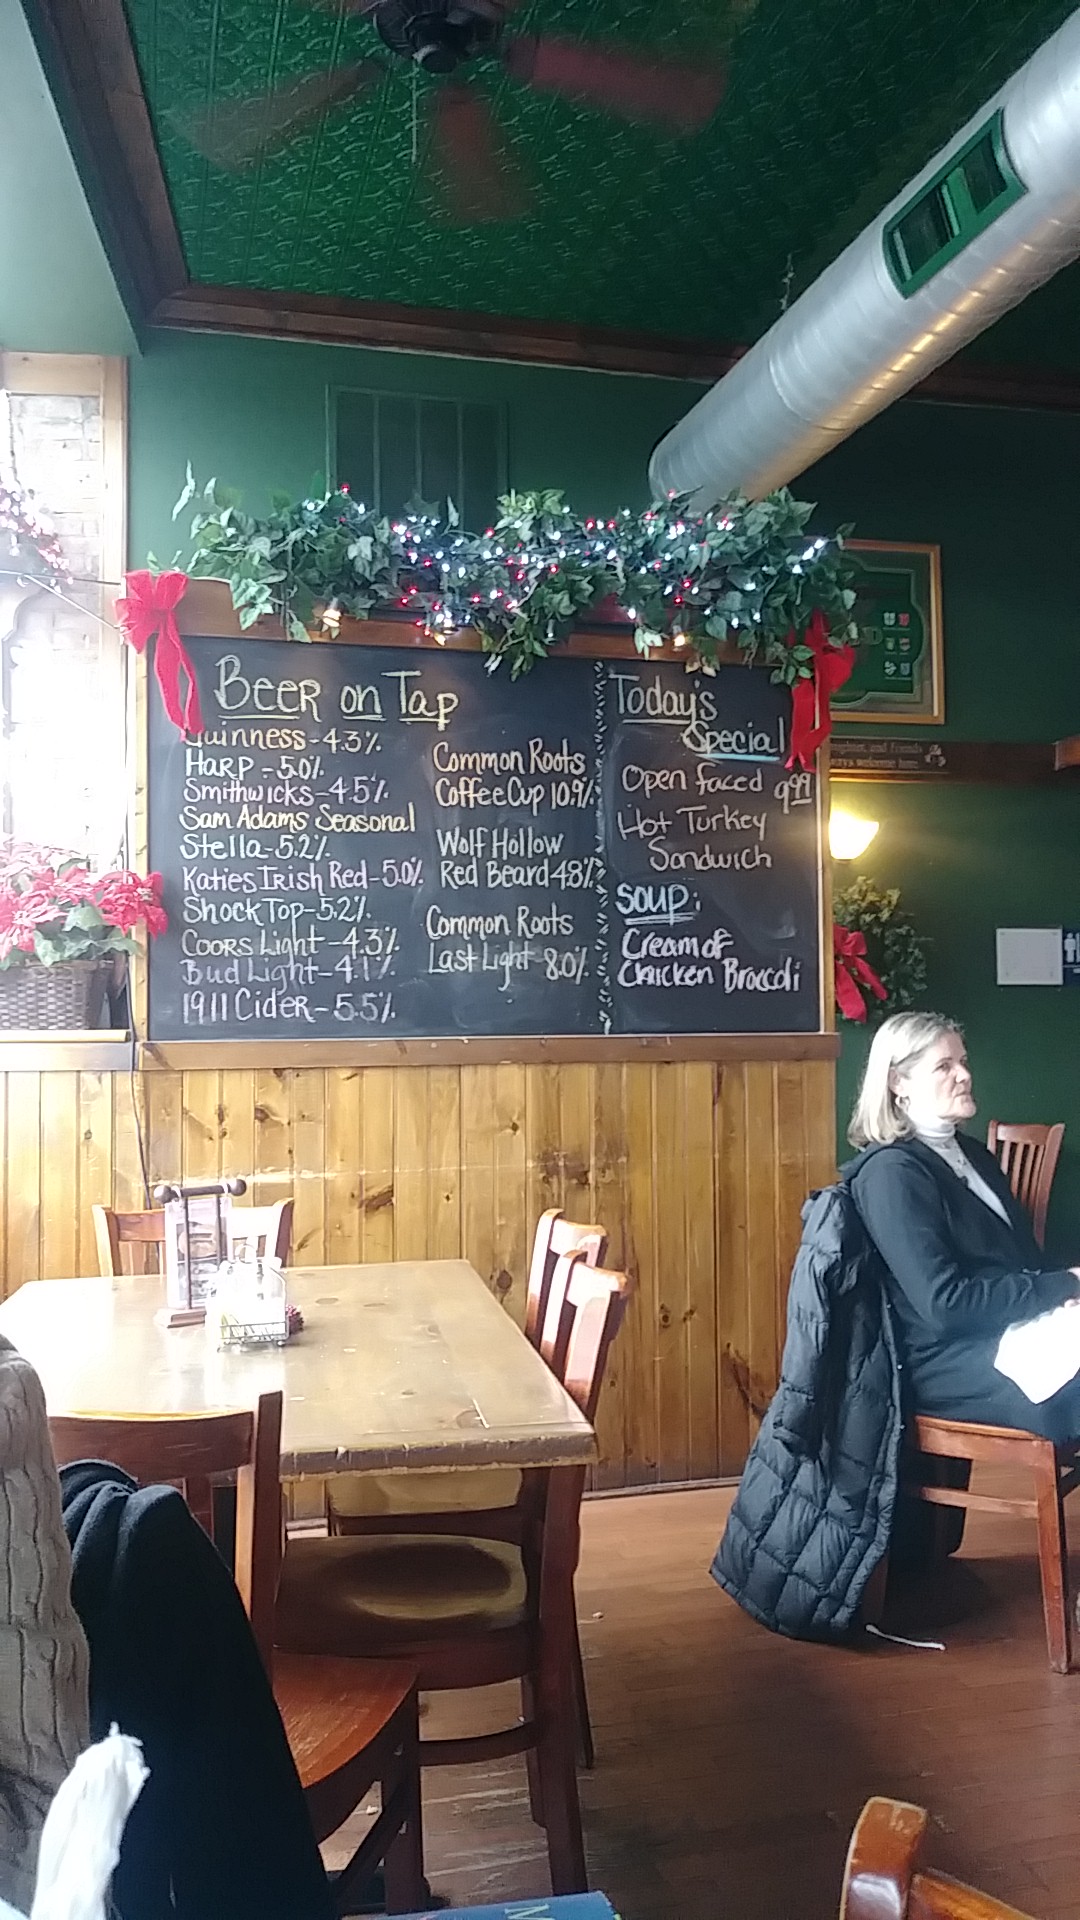 Beer on Tap
Guinness-4.3%
Harp-5.0%
Smithwicks-4.5%
Sam Adams Seasonal
Stella-5.2%
Katies Irish Red-5.0%
Shock Top-5.2%
Coors Light-4.3%
Bud Light-4.1%
1911 Cider-5.5%
Common Roots
Coffee Cup 10.9%
Wolf Hollow
Red Beard 4.8%
Common Roots
Last Light 8.0%
Today's
Special
Open faced 9.99
Hot Turkey
Sandwich
Soup:
Cream of
Chicken Broccoli
and Friends
welcome here
M